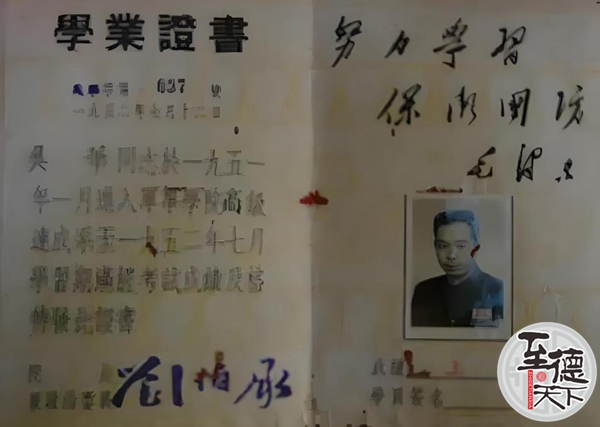 學業證書
037 號
一九五二年七月十二日
吳 華同志於一九五一
年一月進入軍事學院高級
速成系至一九五二年七月
學習期滿經考試成績及格
特發此證書
院 長
劉伯承
努力學習
保衛國防
毛澤東
學員簽名
至德
天下